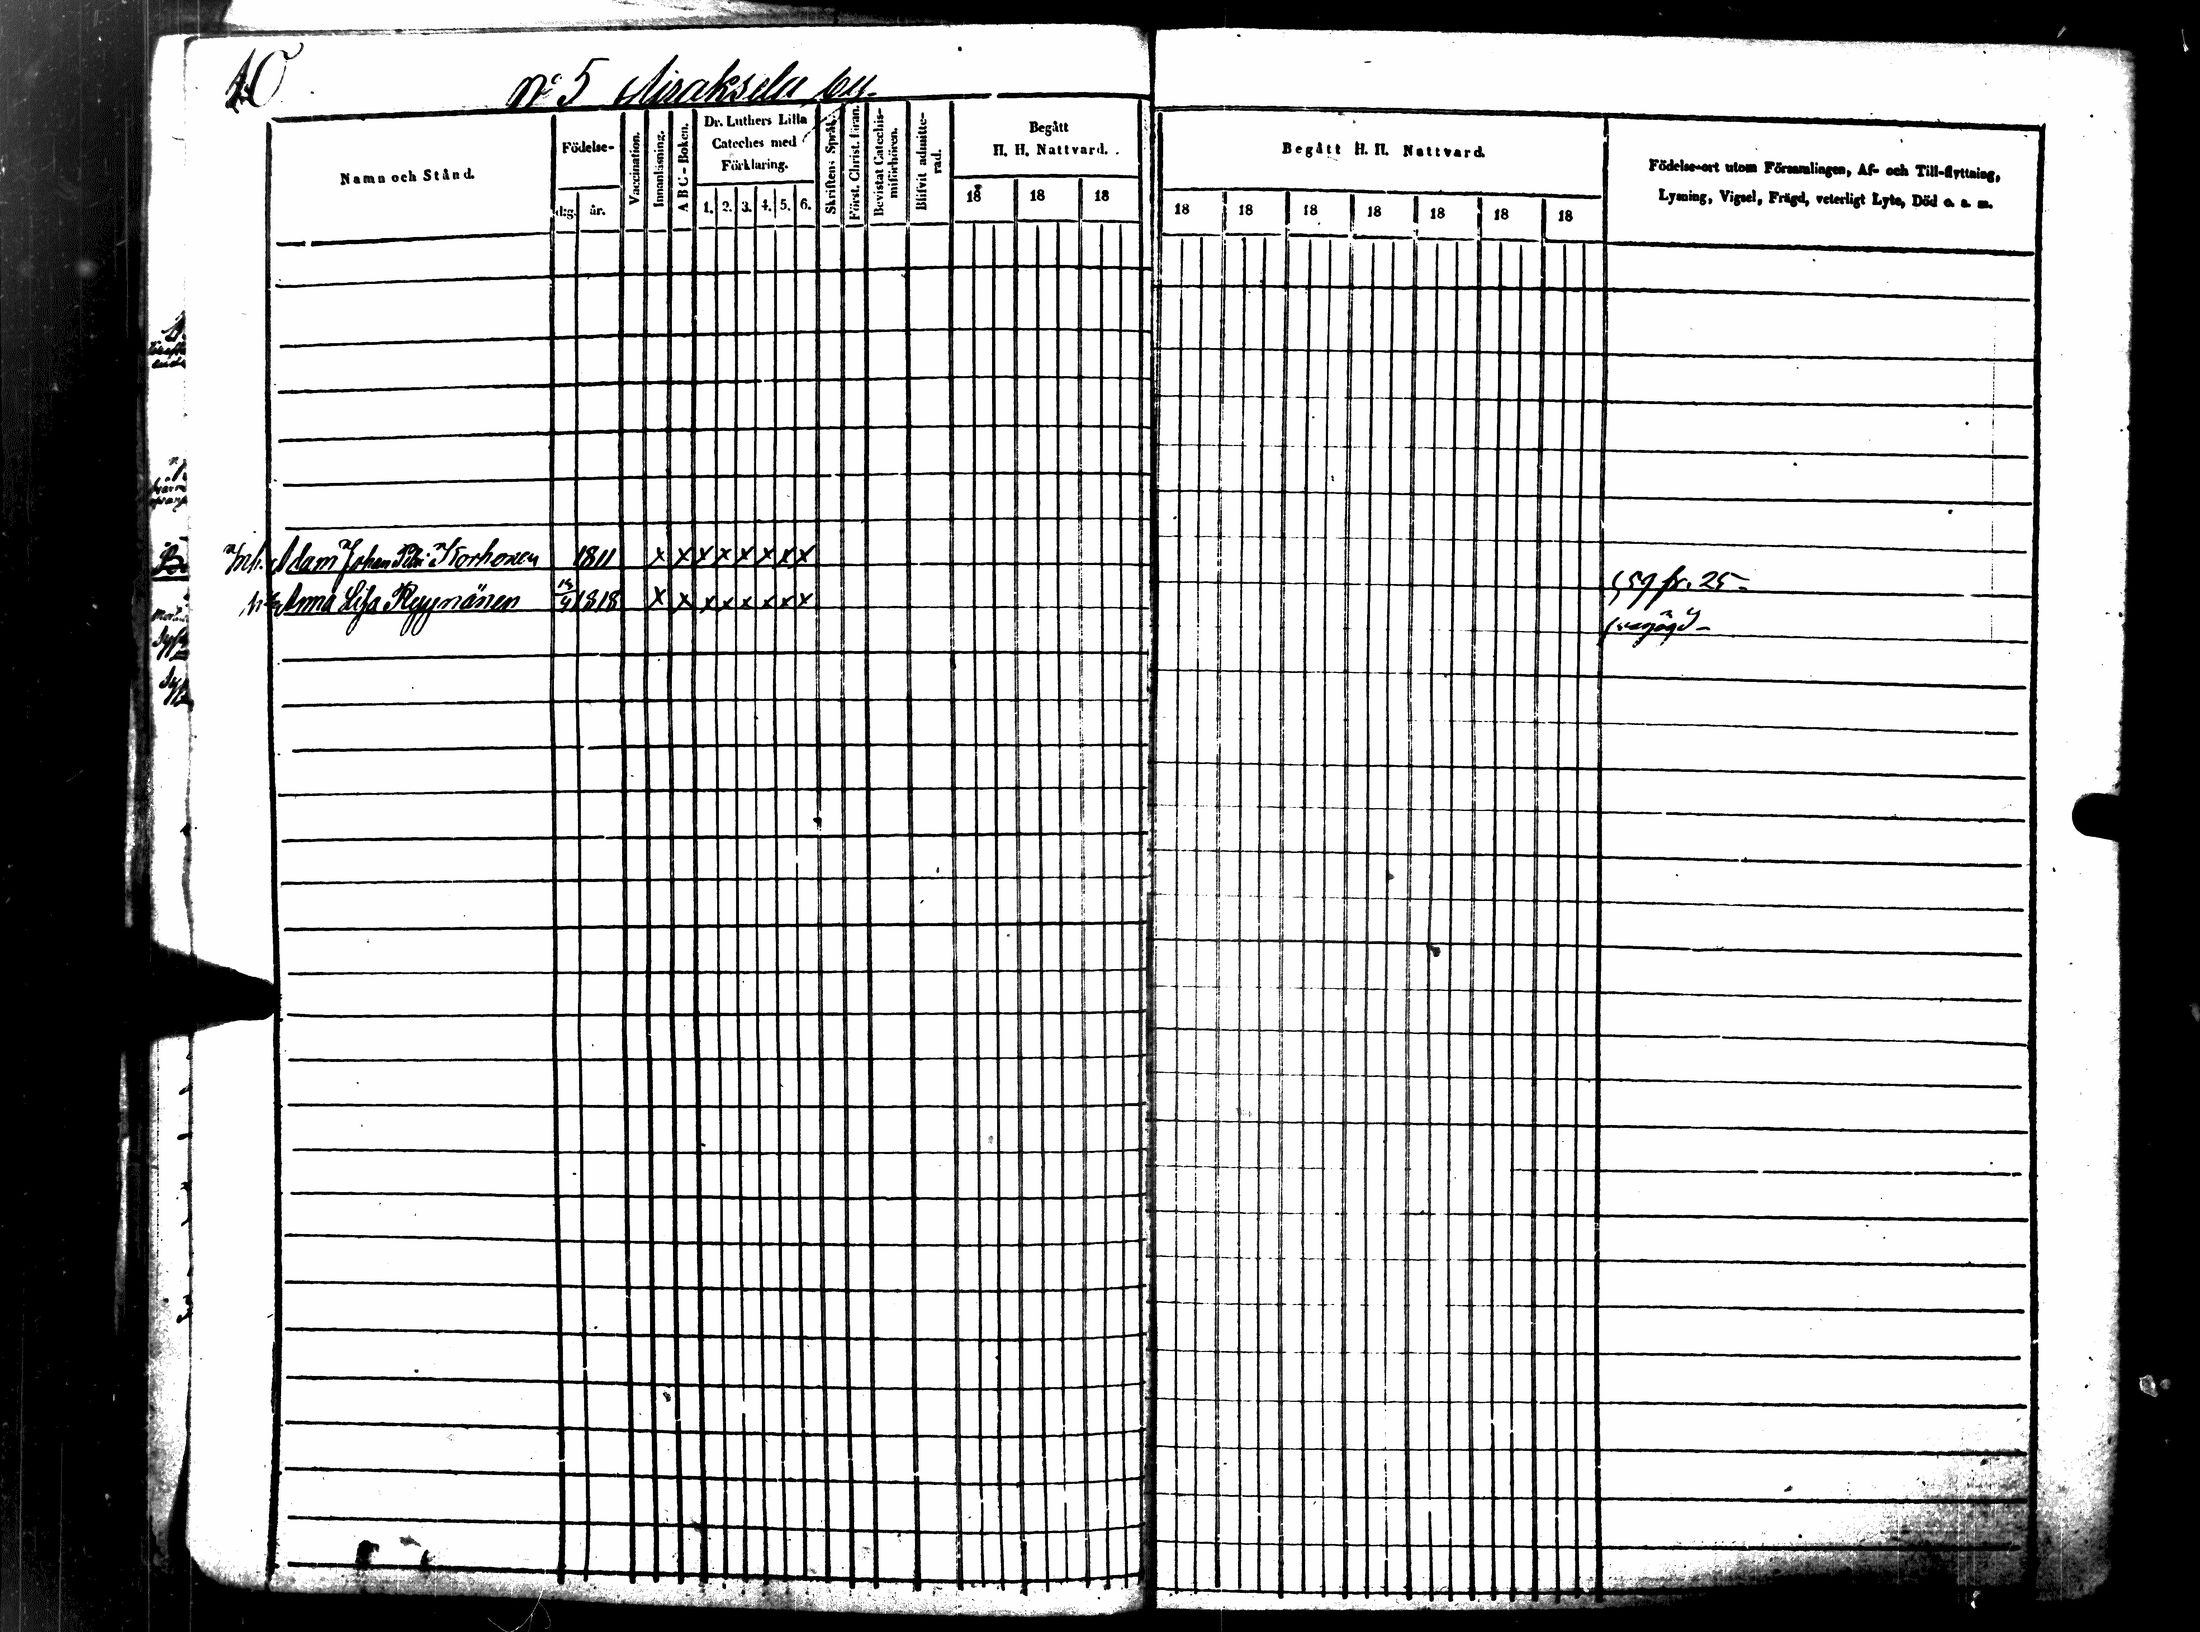 10
No 5 Airaksela by.
Namn och Stånd.
Födelse-
dag. år.
Vaccination.
Innanläsning.
A B C - Boken.
Dr. Luthers Lilla
Cateches med
Förklaring.
1. 2. 3. 4. 5. 6.
Skriftens Språk.
Först. Christ. Läran.
Bevistat Catechis-
miförhören.
Blifvit admitte-
rad.
Begått
H. H. Nattvard.
18 18 18
Begått H. H. Nattvard.
18 18 18 18 18 18 18
Födelse-ort utom Församlingen, Af- och Till-flyttning,
Lysning, Vigsel, Frägd, veterligt Lyte, Död o. s. m.
Adam Johan Korhonen 1811 x x x x x x x x
Anna Lisa Ryynänen 1818 x x x x x x x x
59 fr. 25